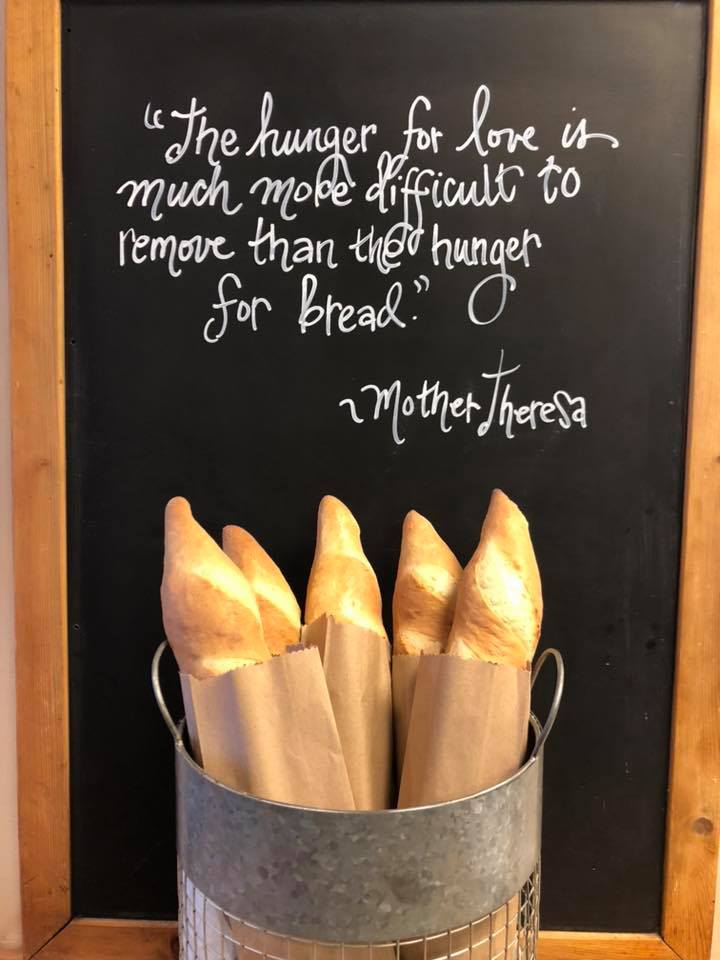 "The hunger for love is
much more difficult to
remove than the hunger
for bread."
~Mother Theresa